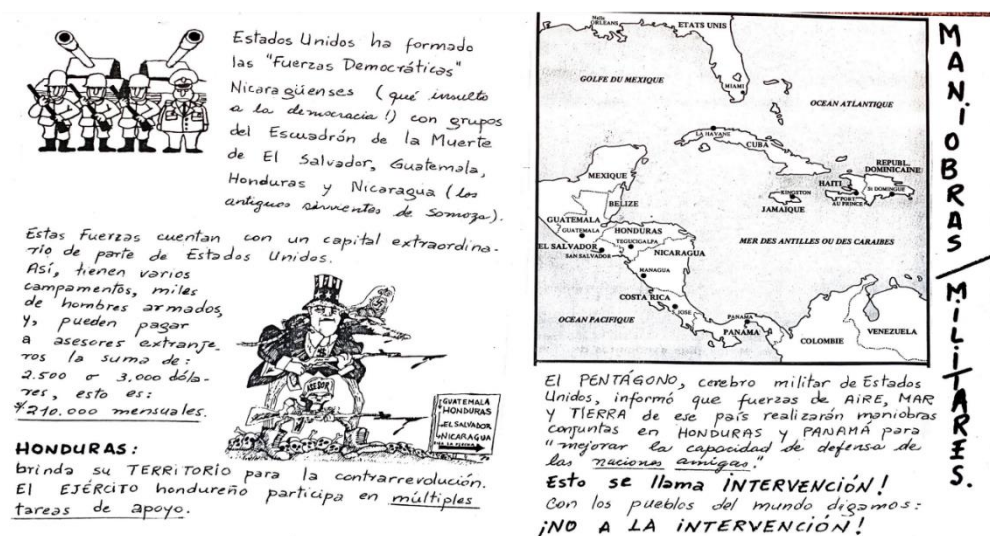 Estados Unidos ha formado
las "Fuerzas Democráticas"
Nicaragüenses (qué insulto
a la democracia!) con grupos
del Escuadrón de la Muerte
de El Salvador, Guatemala,
Honduras y Nicaragua (los
antiguos sirvientes de Somoza).
Estas Fuerzas cuentan con un capital extraordina-
rio de parte de Estados Unidos.
Así, tienen varios
campamentos, miles
de hombres armados,
y, pueden pagar
a asesores extranje-
ros la suma de:
2.500 o 3,000 dóla-
res, esto es:
$210.000 mensuales.
ASEDOR
GUATEMALA
HONDURAS
EL SALVADOR
NICARAGUA
HONDURAS:
brinda su TERRITORIO para la contrarrevolución.
El EJÉRCITO hondureño participa en múltiples
tareas de apoyo.
ETATS UNIS
ORLEANS
GOLFE DU MEXIQUE
MIAMI
OCEAN ATLANTIQUE
LA HAVANE
CUBA
REPUBL.
DOMINICAINE
MEXIQUE
HAITI
KINGSTON
PORT
AU PRINCE
St DOMINGUE
JAMAIQUE
BELIZE
GUATEMALA
GUATEMALA
HONDURAS
TEGUCIGALPA
EL SALVADOR
SAN SALVADOR
NICARAGUA
MER DES ANTILLES OU DES CARAIBES
MANAGUA
COSTA RICA
JOSE
OCEAN PACIFIQUE
PANAMA
PANAMA
COLOMBIE
VENEZUELA
MANIOBRAS / MILITARES.
El PENTÁGONO, cerebro militar de Estados
Unidos, informó que fuerzas de AIRE, MAR
y TIERRA de ese país realizarán maniobras
conjuntas en HONDURAS y PANAMÁ para
"mejorar la capacidad de defensa de
las naciones amigas."
Esto se llama INTERVENCIÓN!
Con los pueblos del mundo digamos:
¡NO A LA INTERVENCIÓN!